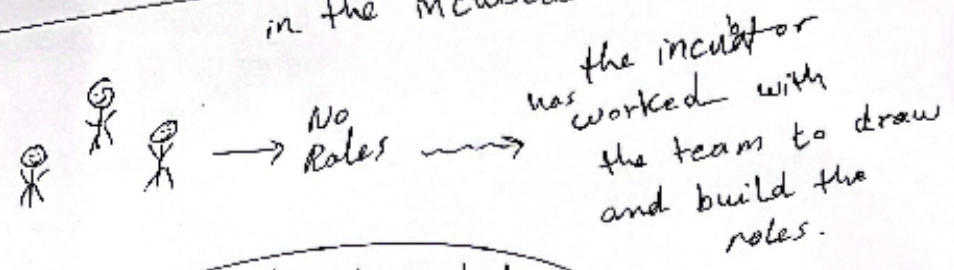 in the
No
Roles
the incubator
has worked with
the team to draw
and build the
roles.